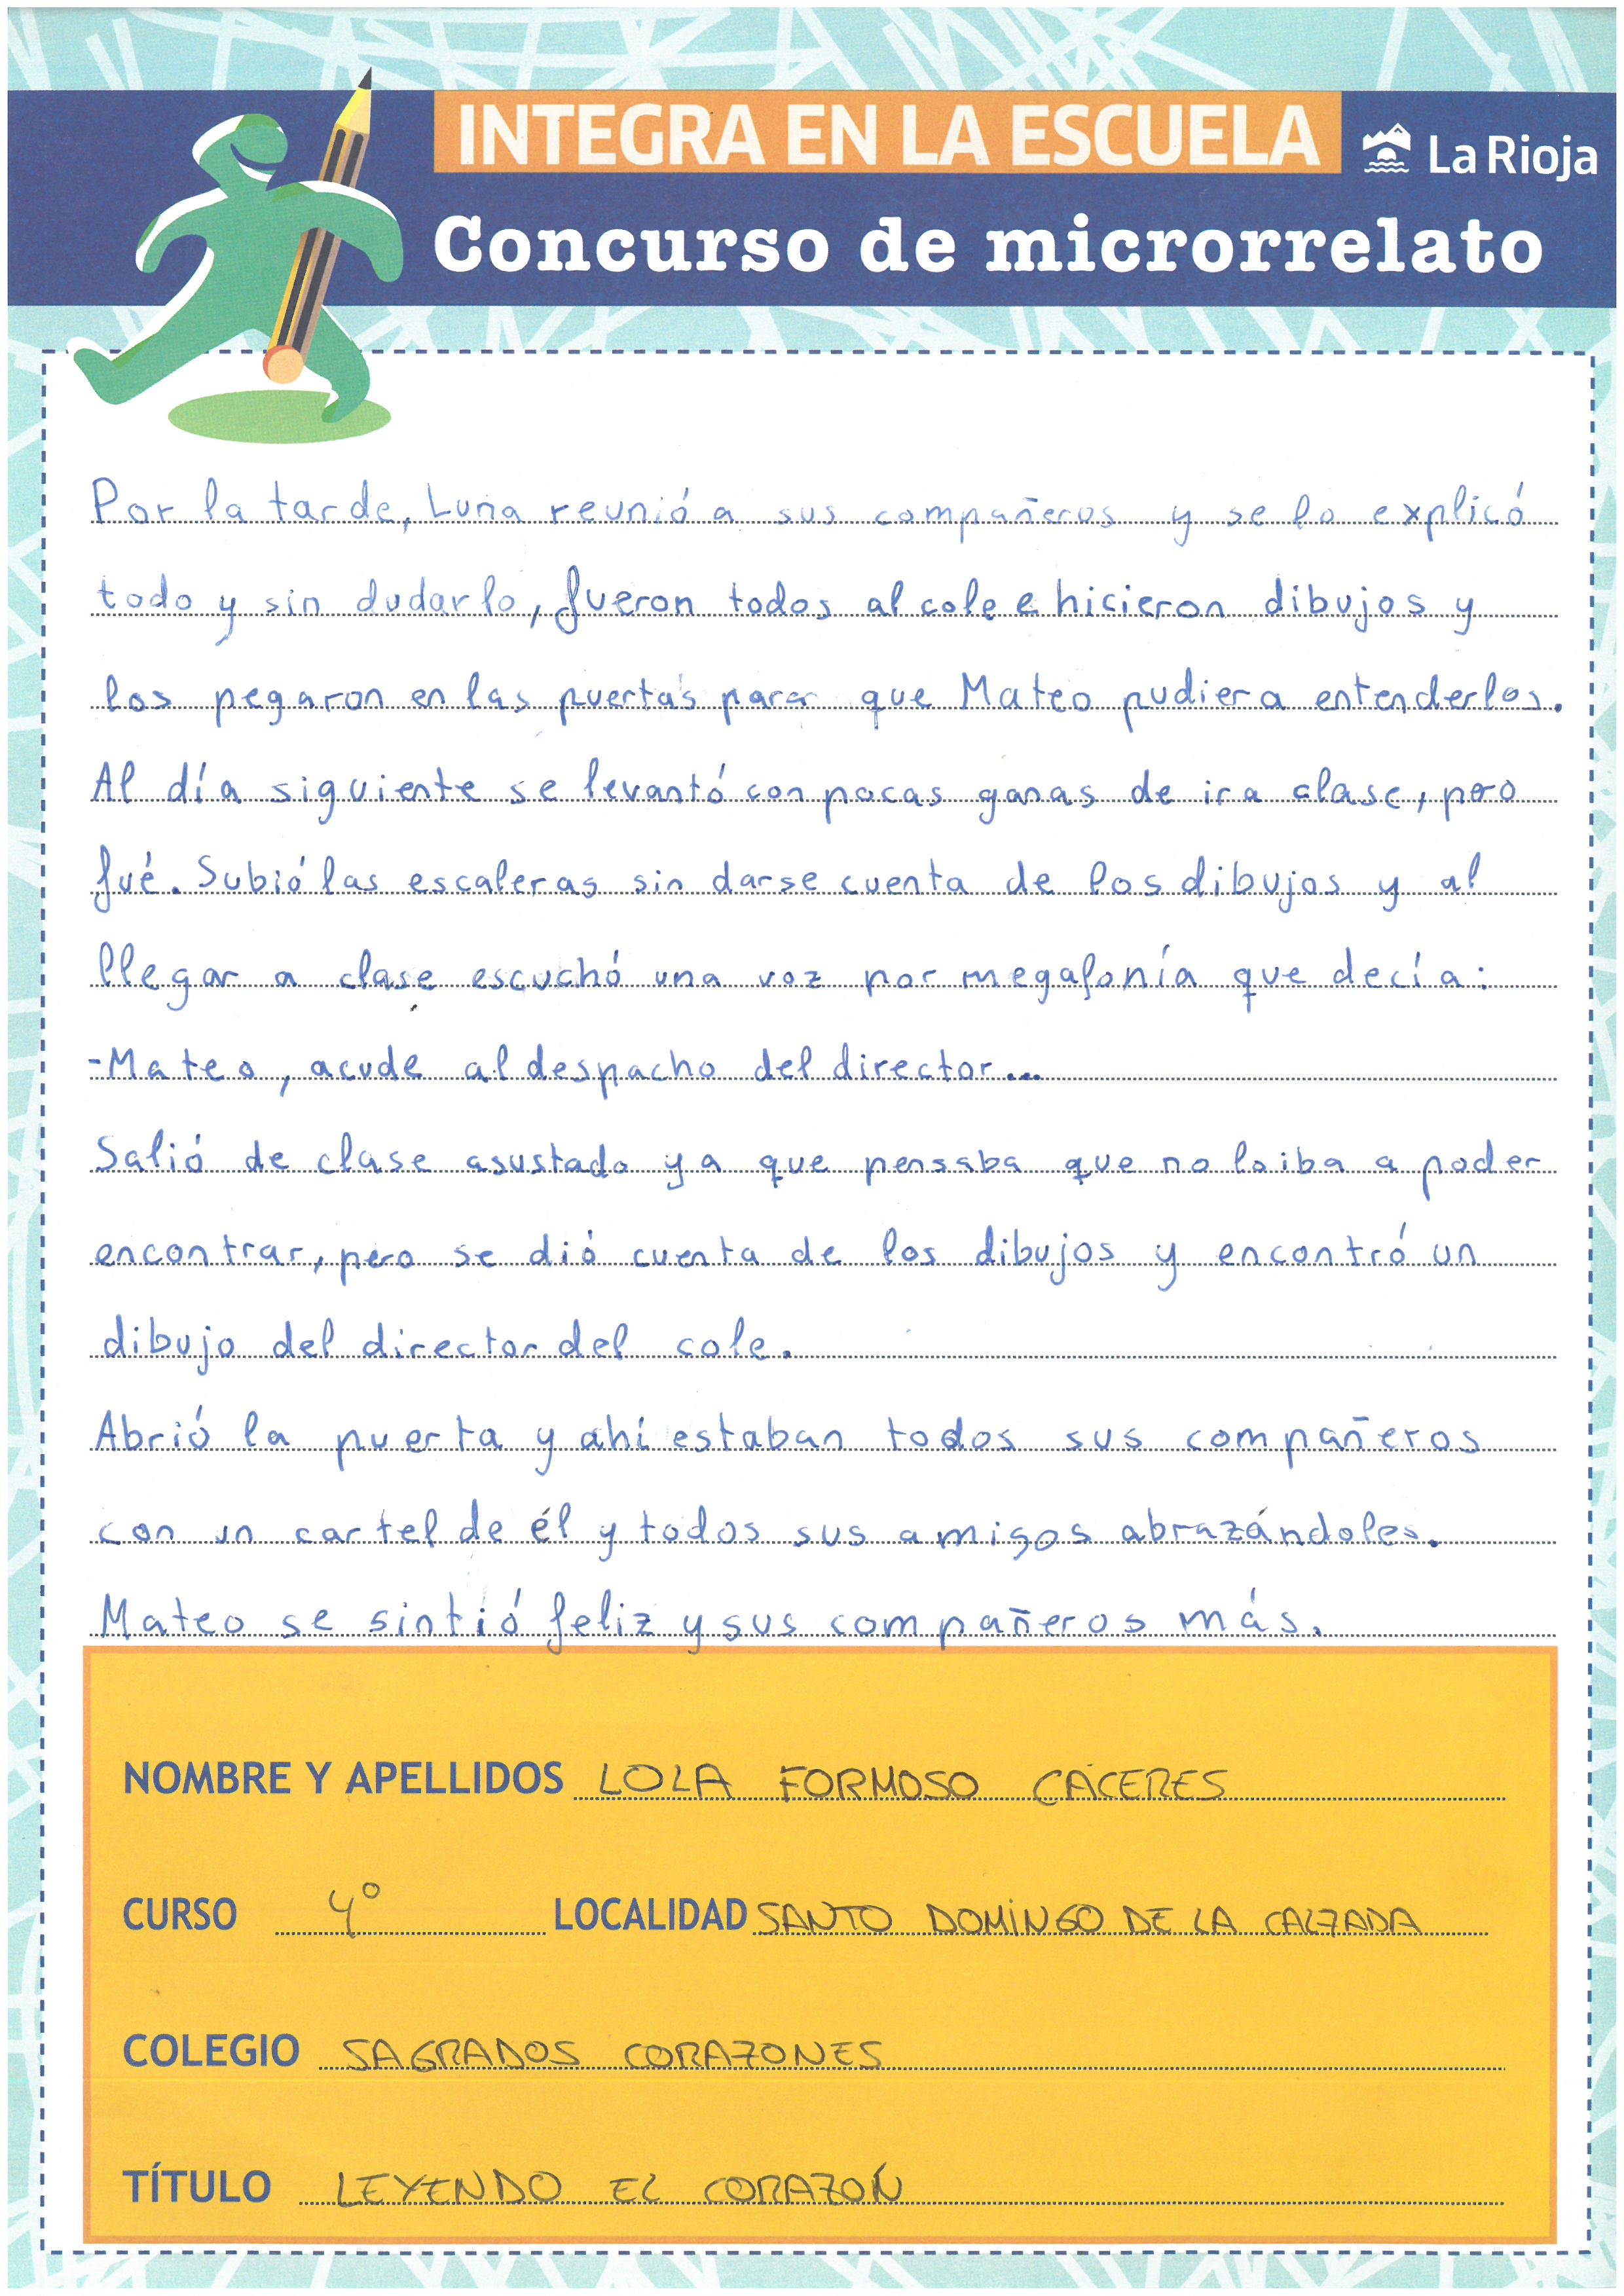 INTEGRA EN LA ESCUELA
La Rioja
Concurso de microrrelato
Por la tarde, Luna reunió a sus compañeros y se lo explicó
todo y sin dudarlo, fueron todos al cole e hicieron dibujos y
los pegaron en las puertas para que Mateo pudiera entenderlos.
Al día siguiente se levantó con pocas ganas de ir a clase, pero
fué. Subió las escaleras sin darse cuenta de los dibujos y al
llegar a clase escuchó una voz por megafonía que decía:
-Mateo, acude al despacho del director...
Salió de clase asustado ya que pensaba que no lo iba a poder
encontrar, pero se dió cuenta de los dibujos y encontró un
dibujo del director del cole.
Abrió la puerta y ahí estaban todos sus compañeros
con un cartel de él y todos sus amigos abrazándoles.
Mateo se sintió feliz y sus compañeros más.
NOMBRE Y APELLIDOS LOLA FORMOSO CÁCERES
CURSO 4º LOCALIDAD SANTO DOMINGO DE LA CALZADA
COLEGIO SAGRADOS CORAZONES
TÍTULO LEYENDO EL CORAZÓN